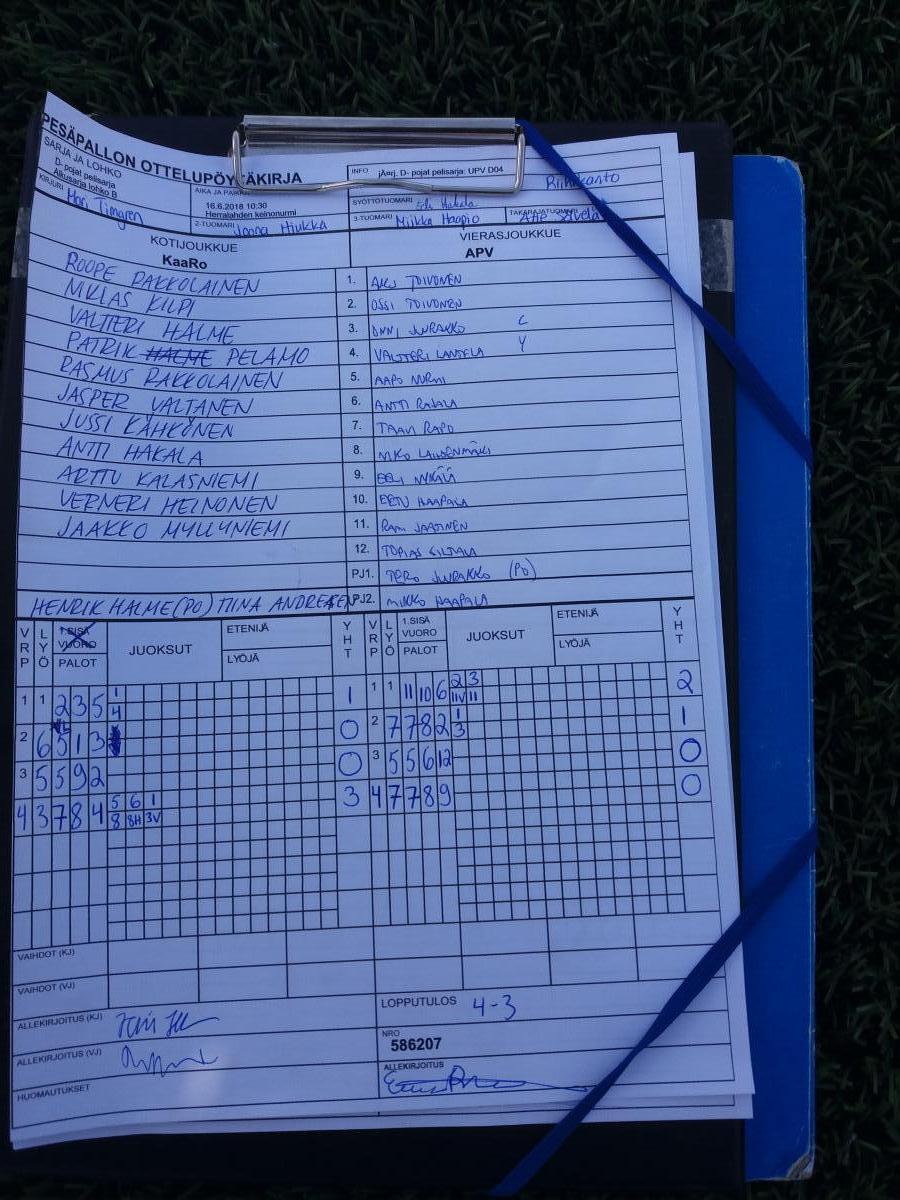 PESÄPALLON OTTELUPÖYTÄKIRJA
SARJA JA LOHKO
D- pojat pelisarja
Alkusarja lohko B
AIKA JA PAIKKA
16.6.2018 10:30
Herralahden keinonurmi
INFO jÄrj. D- pojat pelisarja: UPV D04
SYÖTTÖTUOMARI Hakala
KIRJURI Timgren
2-TUOMARI Joona Hiukka
3-TUOMARI Miikka Haapio
TAKARAJATUOMARI
KOTIJOUKKUE
KaaRo
VIERASJOUKKUE
APV
ROOPE RAKKOLAINEN
1. AKU TOIVONEN
NIKLAS KILPI
2. OSSI TOIVONEN
VALTTERI HALME
3. ONNI JURAKKO C
PATRIK HALME PELAMO
4. VALTTERI LANTELA Y
RASMUS RAKKOLAINEN
5. AAPO NURMI
JASPER VALTANEN
6. ANTTI RAJALA
JUSSI KÄHKÖNEN
7. TAAVI RAPO
ANTTI HAKALA
8. NIKO
ARTTU KALASNIEMI
9. EELI
VERNERI HEINONEN
10. EETU HAAPALA
JAAKKO MYLLYNIEMI
11. RAMI JAATINEN
12. TOPIAS
PJ1. TERO JURAKKO (PO)
HENRIK HALME (PO) TIINA ANDREASEN
PJ2. MIKKO HAAPALA
VRP LYÖ 1.SISÄ VUORO PALOT JUOKSUT ETENIJÄ LYÖJÄ YHT
VRP LYÖ 1.SISÄ VUORO PALOT JUOKSUT ETENIJÄ LYÖJÄ YHT
1 1 2 3 5 1 4 1
1 1 11 10 6 2 3 11V 11 2
2 6 5 1 3 0
2 7 7 8 2 1 3 1
3 5 5 9 2 0
3 5 5 6 12 0
4 3 7 8 4 5 6 1 8 8H 3V 3
4 7 7 8 9 0
VAIHDOT (KJ)
VAIHDOT (VJ)
ALLEKIRJOITUS (KJ)
LOPPUTULOS 4-3
ALLEKIRJOITUS (VJ)
NRO
586207
HUOMAUTUKSET
ALLEKIRJOITUS